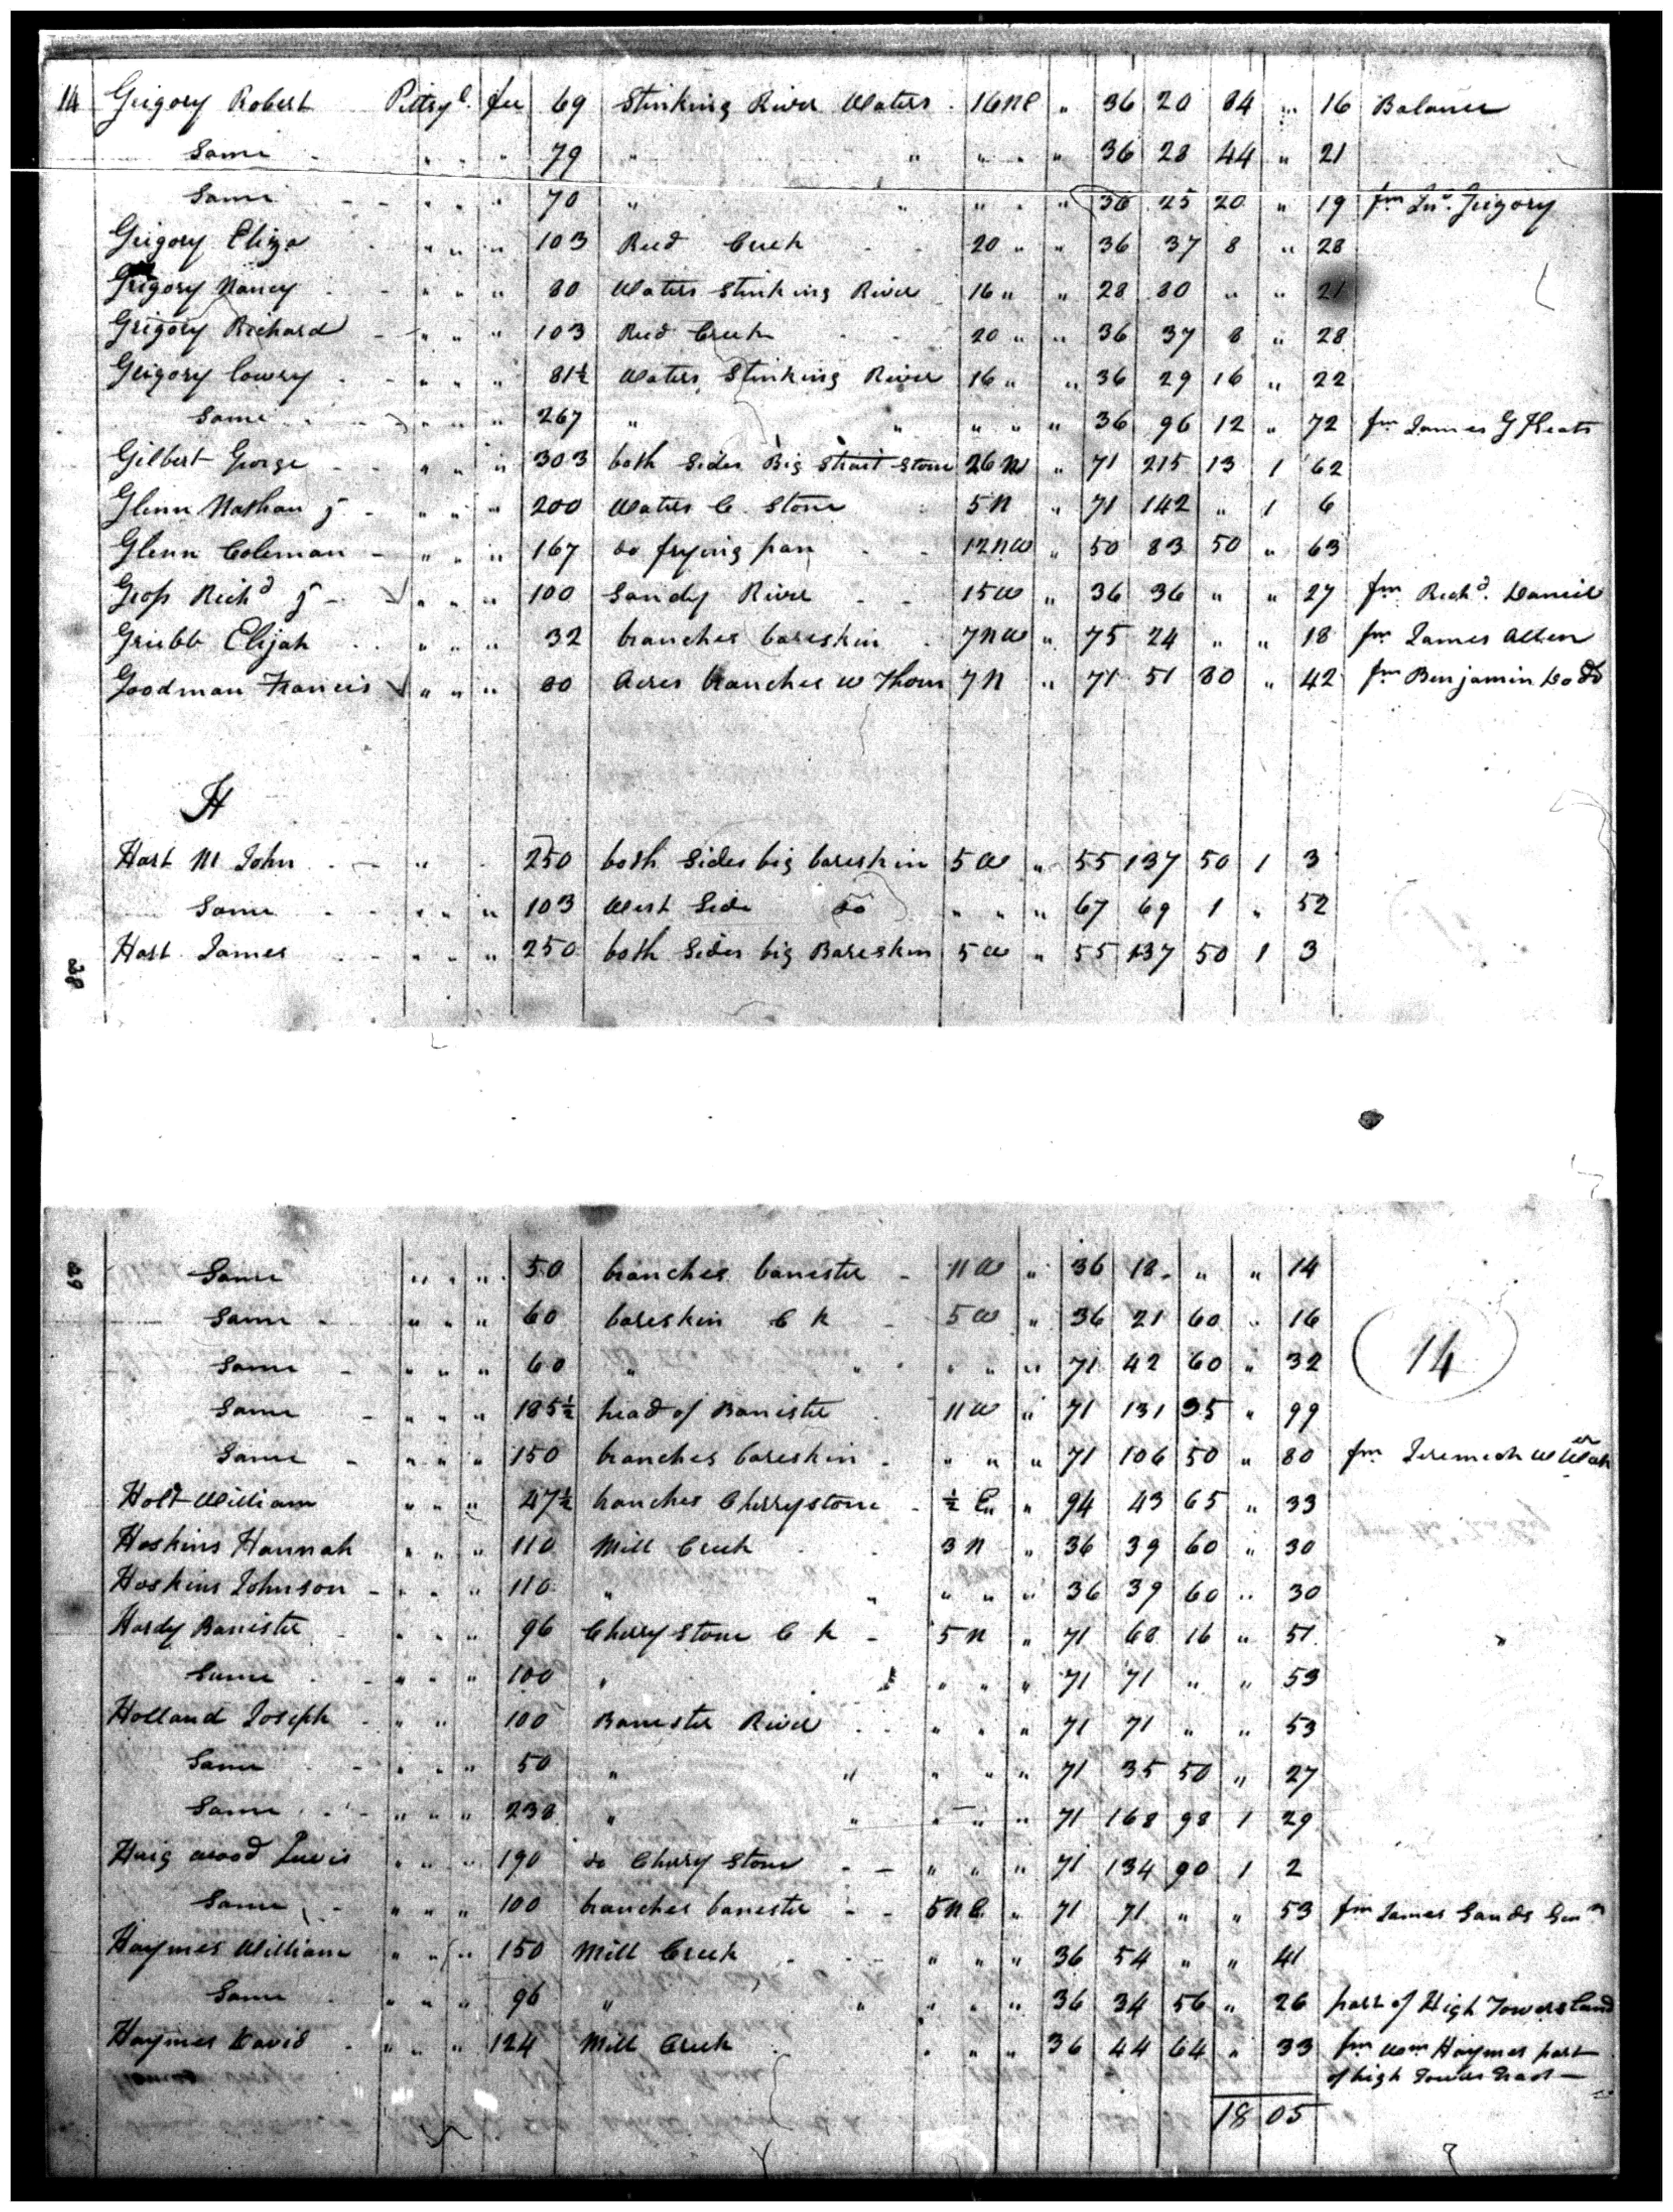 14 Grigory Robert Pittsyl. fee 69 Stinking River Waters 16 NE " 36 20 84 " 16 Balance
Same " " " 79 " " " " " 36 28 44 " 21
Same " " " 70 " " " " " 36 25 20 " 19 fm Jno. Grigory
Grigory Eliza " " " 103 Reed Creek 20 " " 36 37 8 " 28
Grigory Nancy " " " 80 Waters Stinking River 16 " " 28 80 " " 21
Grigory Richard " " " 103 Reed Creek 20 " " 36 37 8 " 28
Grigory Lowry " " " 81½ Waters Stinking River 16 " " 36 29 16 " 22
Same " " " 267 " " " " " 36 96 12 " 72 fm James G Keats
Gilbert George " " " 303 both Sides Big Strait Stone 26 N " 71 215 13 1 62
Glenn Nathan " " " 200 Waters C. Stone 5 N " 71 142 " 1 6
Glenn Coleman " " " 167 do frying pan 12 NW " 50 83 50 " 63
Gross Richd " " " 100 Sandy River 15 W " 36 36 " " 27 fm Richd. Daniel
Grubb Elijah " " " 32 branches bareskin 7 NW " 75 24 " " 18 fm James Allen
Goodman Francis " " " 80 Acres branches W Thorn 7 N " 71 51 80 " 42 fm Benjamin
H
Hart M John " 250 both Sides big bareskin 5 W " 55 137 50 1 3
Same " " " 103 West Side do " " " 67 69 1 " 52
Hart James " " " 250 both Sides big Bareskin 5 W " 55 137 50 1 3
28
29 Same " " " 50 branches banester 11 W " 36 18 " " 14
Same " " " 60 bareskin C K 5 W " 36 21 60 " 16
14
Same " " " 60 " " " " " 71 42 60 " 32
Same " " " 185½ head of Banister 11 W " 71 131 35 " 99
Same " " " 150 branches bareskin " " " 71 106 50 " 80 fm Jeremiah W
Holt William " " " 47½ branches Cherrystone ½ E " 94 43 65 " 33
Hoskins Hannah " " " 110 Mill Creek 3 N " 36 39 60 " 30
Hoskins Johnson " " " 110 " " " " " 36 39 60 " 30
Hardy Banister " " " 96 Cherry Stone C K 5 N " 71 68 16 " 51
Same " " " 100 " " " " 71 71 " " 53
Holland Joseph " " 100 Banester River " " " 71 71 " " 53
Same " " " 50 " " " " " 71 35 50 " 27
Same " " " 238 " " " " " 71 168 98 1 29
Haig wood Lewis " " " 190 do Cherry Stone " " " 71 134 90 1 2
Same " " " 100 branches banester 5 NE " 71 71 " " 53 fm James Sands
Haymes William " " " 150 Mill Creek " " " 36 54 " " 41
Same " " " 96 " " " " " 36 34 56 " 26 part of High Towers land
Haymes David " " " 124 Mill Creek " " " 36 44 64 " 33 fm Wm Haymes part
of high Towers tract
18 05